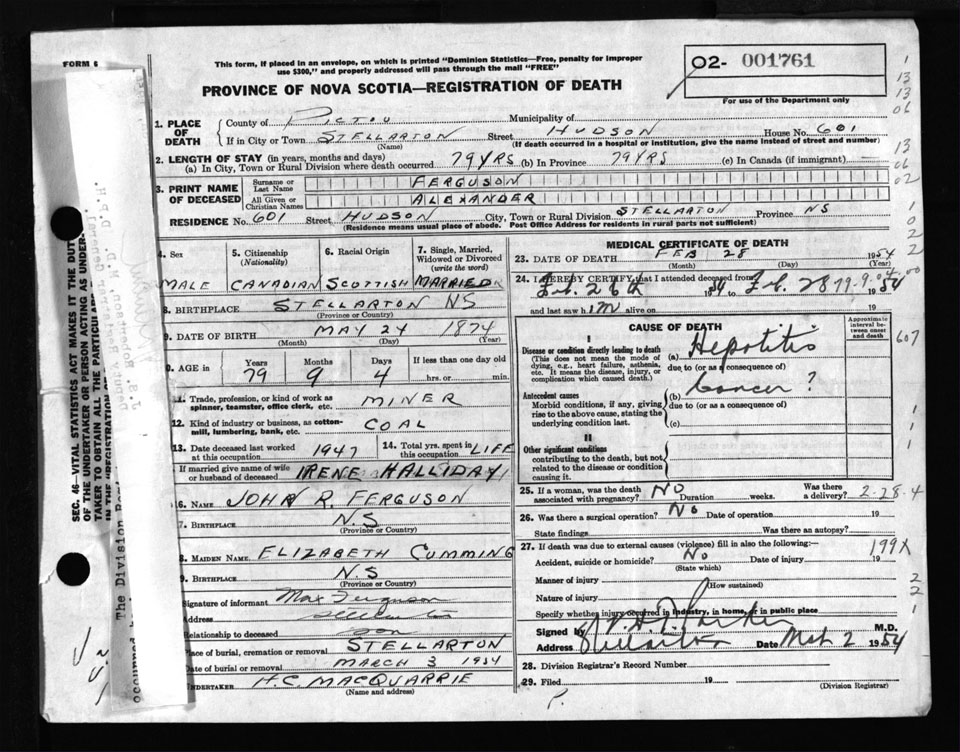 FORM 6
This form, if placed in an envelope, on which is printed "Dominion Statistics—Free, penalty for improper
use $300," and properly addressed will pass through the mail "FREE"
PROVINCE OF NOVA SCOTIA—REGISTRATION OF DEATH
O2- 001761
For use of the Department only
1. PLACE OF DEATH
County of PICTOU Municipality of
If in City or Town STELLARTON Street HUDSON House No. 601
(Name) (If death occurred in a hospital or institution, give the name instead of street and number)
2. LENGTH OF STAY (in years, months and days)
(a) In City, Town or Rural Division where death occurred 79 YRS (b) In Province 79 YRS (c) In Canada (if immigrant)
3. PRINT NAME OF DECEASED
Surname or Last Name FERGUSON
All Given or Christian Names ALEXANDER
RESIDENCE No. 601 Street HUDSON City, Town or Rural Division STELLARTON Province NS
(Residence means usual place of abode. Post Office Address for residents in rural parts not sufficient)
4. Sex
MALE
5. Citizenship (Nationality)
CANADIAN
6. Racial Origin
SCOTTISH
7. Single, Married, Widowed or Divorced (write the word)
MARRIED
8. BIRTHPLACE STELLARTON NS
(Province or Country)
9. DATE OF BIRTH MAY 24 1874
(Month) (Day) (Year)
AGE in Years Months Days If less than one day old
79 9 4 hrs. or min.
11. Trade, profession, or kind of work as
spinner, teamster, office clerk, etc. MINER
12. Kind of industry or business, as cotton-
mill, lumbering, bank, etc. COAL
13. Date deceased last worked
at this occupation 1947
14. Total yrs. spent in
this occupation LIFE
If married give name of wife
or husband of deceased IRENE HALLIDAY
6. NAME JOHN R. FERGUSON
7. BIRTHPLACE N.S
(Province or Country)
8. MAIDEN NAME ELIZABETH CUMMING
9. BIRTHPLACE N.S
(Province or Country)
Signature of informant Max Ferguson
Address
Relationship to deceased son
Place of burial, cremation or removal STELLARTON
Date of burial or removal MARCH 3 1954
UNDERTAKER H.C. MACQUARRIE
(Name and address)
MEDICAL CERTIFICATE OF DEATH
23. DATE OF DEATH FEB 28 1954
(Month) (Day) (Year)
24. I HEREBY CERTIFY that I attended deceased from
Feb. 26th 1954 to Feb. 28 1954
79-9-04
and last saw him alive on 19
CAUSE OF DEATH
Approximate interval between onset and death
I
Disease or condition directly leading to death
(This does not mean the mode of
dying, e.g., heart failure, asthenia,
etc. It means the disease, injury, or
complication which caused death.)
(a) Hepatitis
due to (or as a consequence of)
Antecedent causes
Morbid conditions, if any, giving
rise to the above cause, stating the
underlying condition last.
(b) Cancer ?
due to (or as a consequence of)
(c)
II
Other significant conditions
contributing to the death, but not
related to the disease or condition
causing it.
25. If a woman, was the death
associated with pregnancy? NO Duration weeks. Was there a delivery? 2-28-4
26. Was there a surgical operation? No Date of operation 19
State findings Was there an autopsy?
27. If death was due to external causes (violence) fill in also the following:— 199X
Accident, suicide or homicide? No Date of injury 19
(State which)
Manner of injury
(How sustained)
Nature of injury
Specify whether injury occurred in industry, in home, or in public place
Signed by M.D.
Address Stellarton Date Mch 2 1954
28. Division Registrar's Record Number
29. Filed 19
(Division Registrar)
SEC. 46—VITAL STATISTICS ACT MAKES IT THE DUTY
OF THE UNDERTAKER OR PERSON ACTING AS UNDER-
TAKER TO OBTAIN ALL THE PARTICULAR
IN THE "REGISTRATION OF
J. R. Robertson, M.D. D.P.H.
Deputy Registrar General
The Division
1
13
13
06
13
06
02
1
0
2
2
607
1
1
1
2
2
1